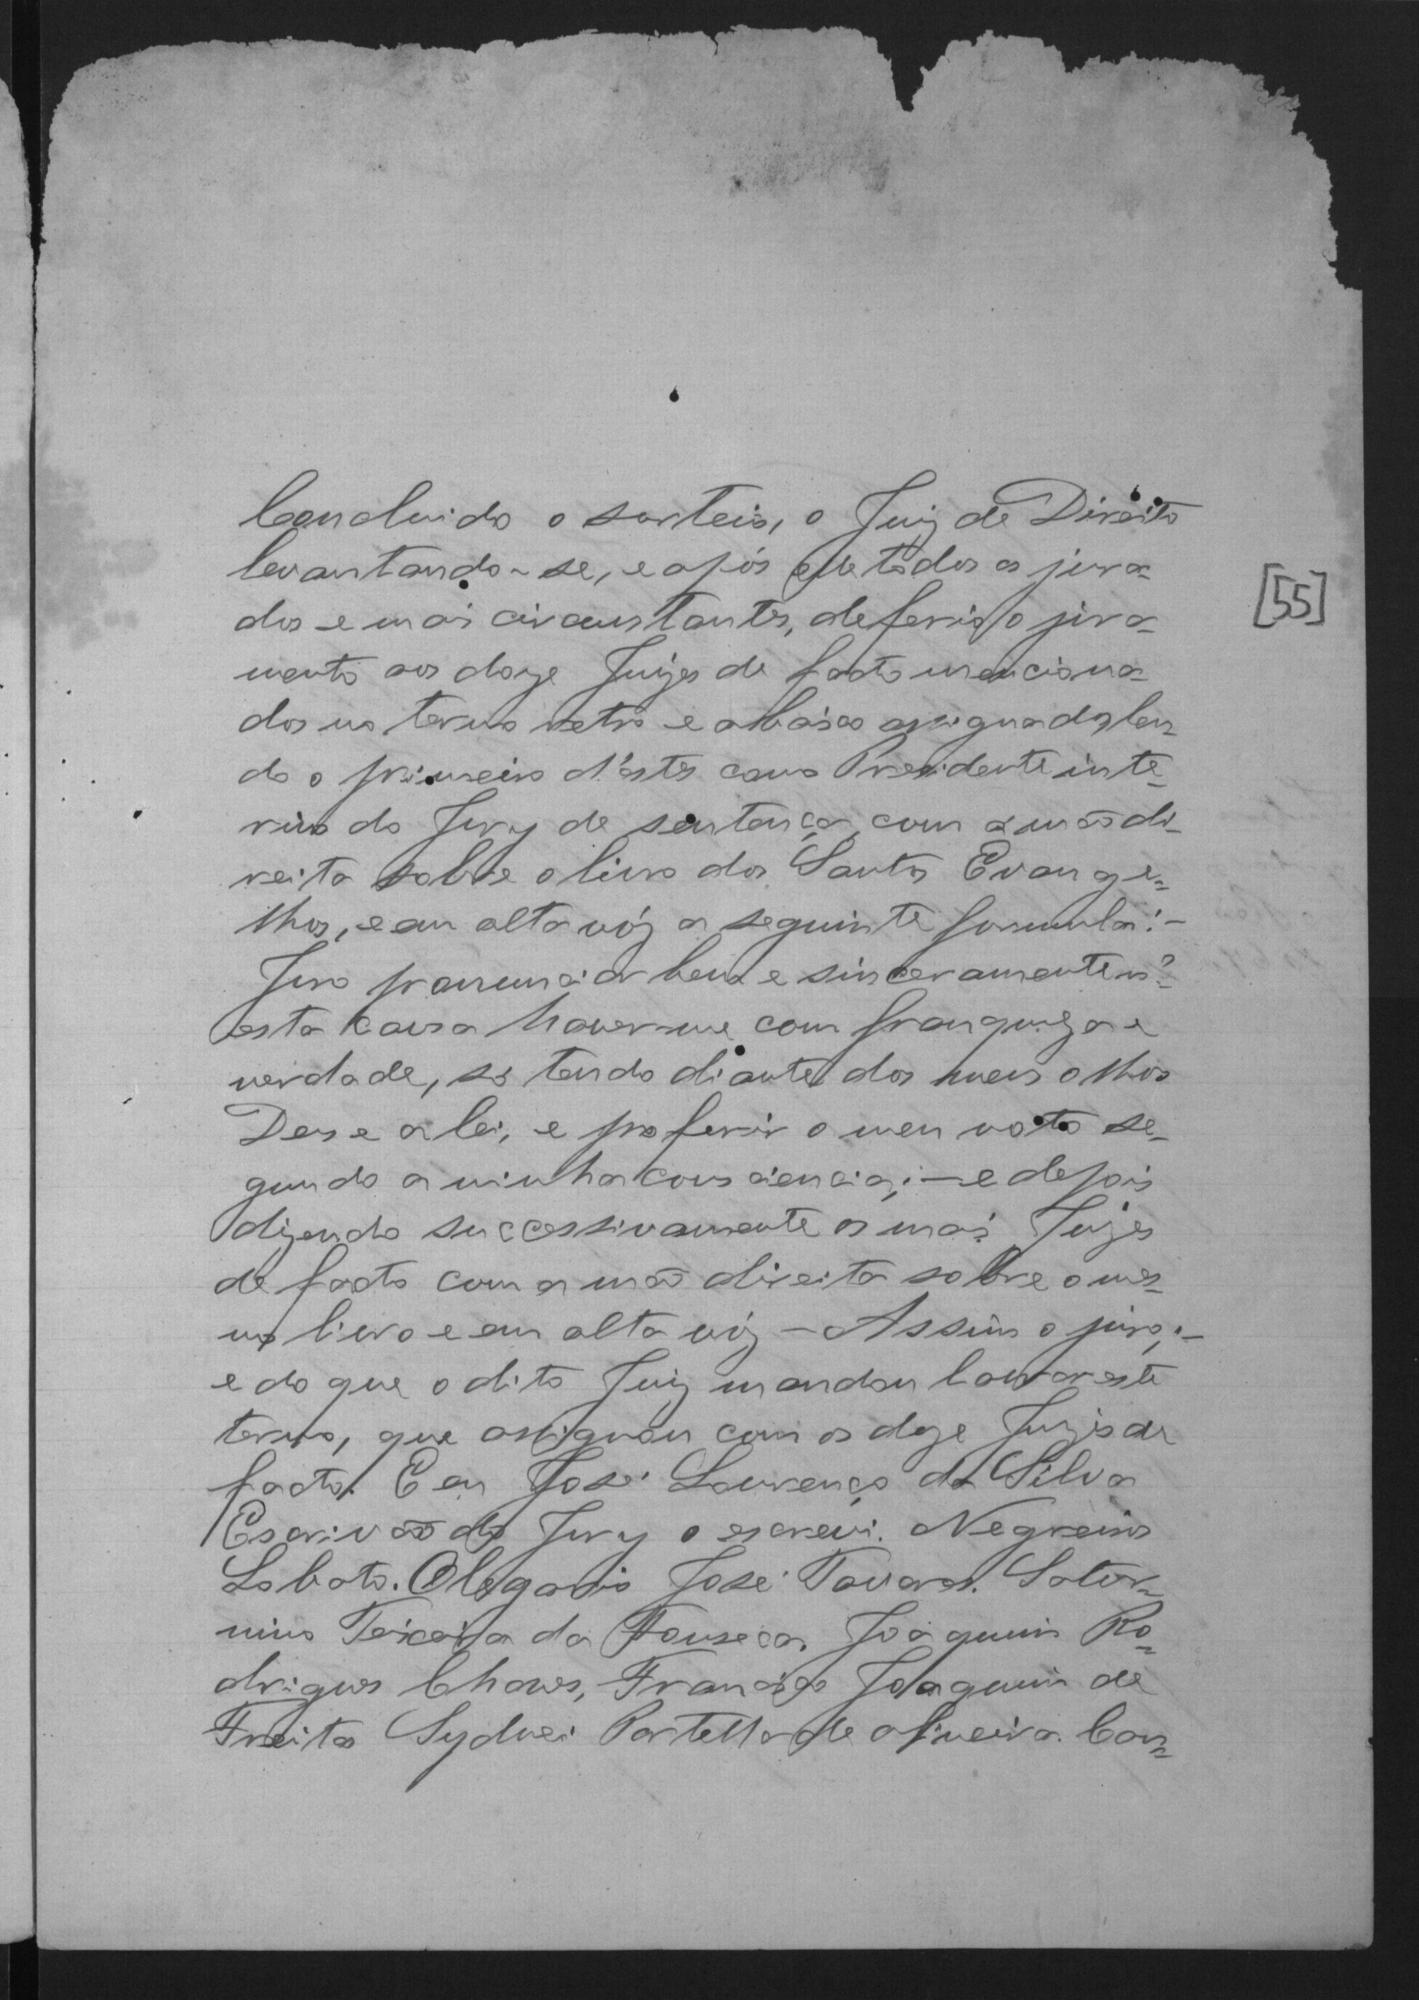 Concluido o sorteio, o Juiz de Direito
levantando-se, e após elle todos os jura-
dos e mais circunstantes, deferio o jura-
mento aos doze Juizes de facto menciona-
dos no termo retro e abaixo assignados, len-
do o primeiro d'estes como Presidente inte-
rino do Jury de sentença, com a mão di-
reita sobre o livro dos Santos Evange-
lhos, e em alta vóz a seguinte formula:-
Juro pronunciar bem e sinceramente n'
esta causa haver-me com franqueza e
verdade, só tendo diante dos meus olhos
Deus e a lei, e proferir o meu voto se-
gundo a minha consciencia; - e depois
dizendo successivamente os mais Juizes
de facto com a mão direita sobre o mes-
mo livro e em alta vóz - Assim o juro; -
e do que o dito Juiz mandou lavrar este
termo, que assignou com os doze Juizes de
facto. E eu José Lourenço da Silva
Escrivão do Jury o escrevi. Negreiros
Lobato. Olegario José Tavares. Satur-
nino Teixeira da Fonseca. Joaquim Ro-
drigues Chaves, Francisco Joaquim de
Freitas Sydnei Portella de Oliveira. Con-
[55]